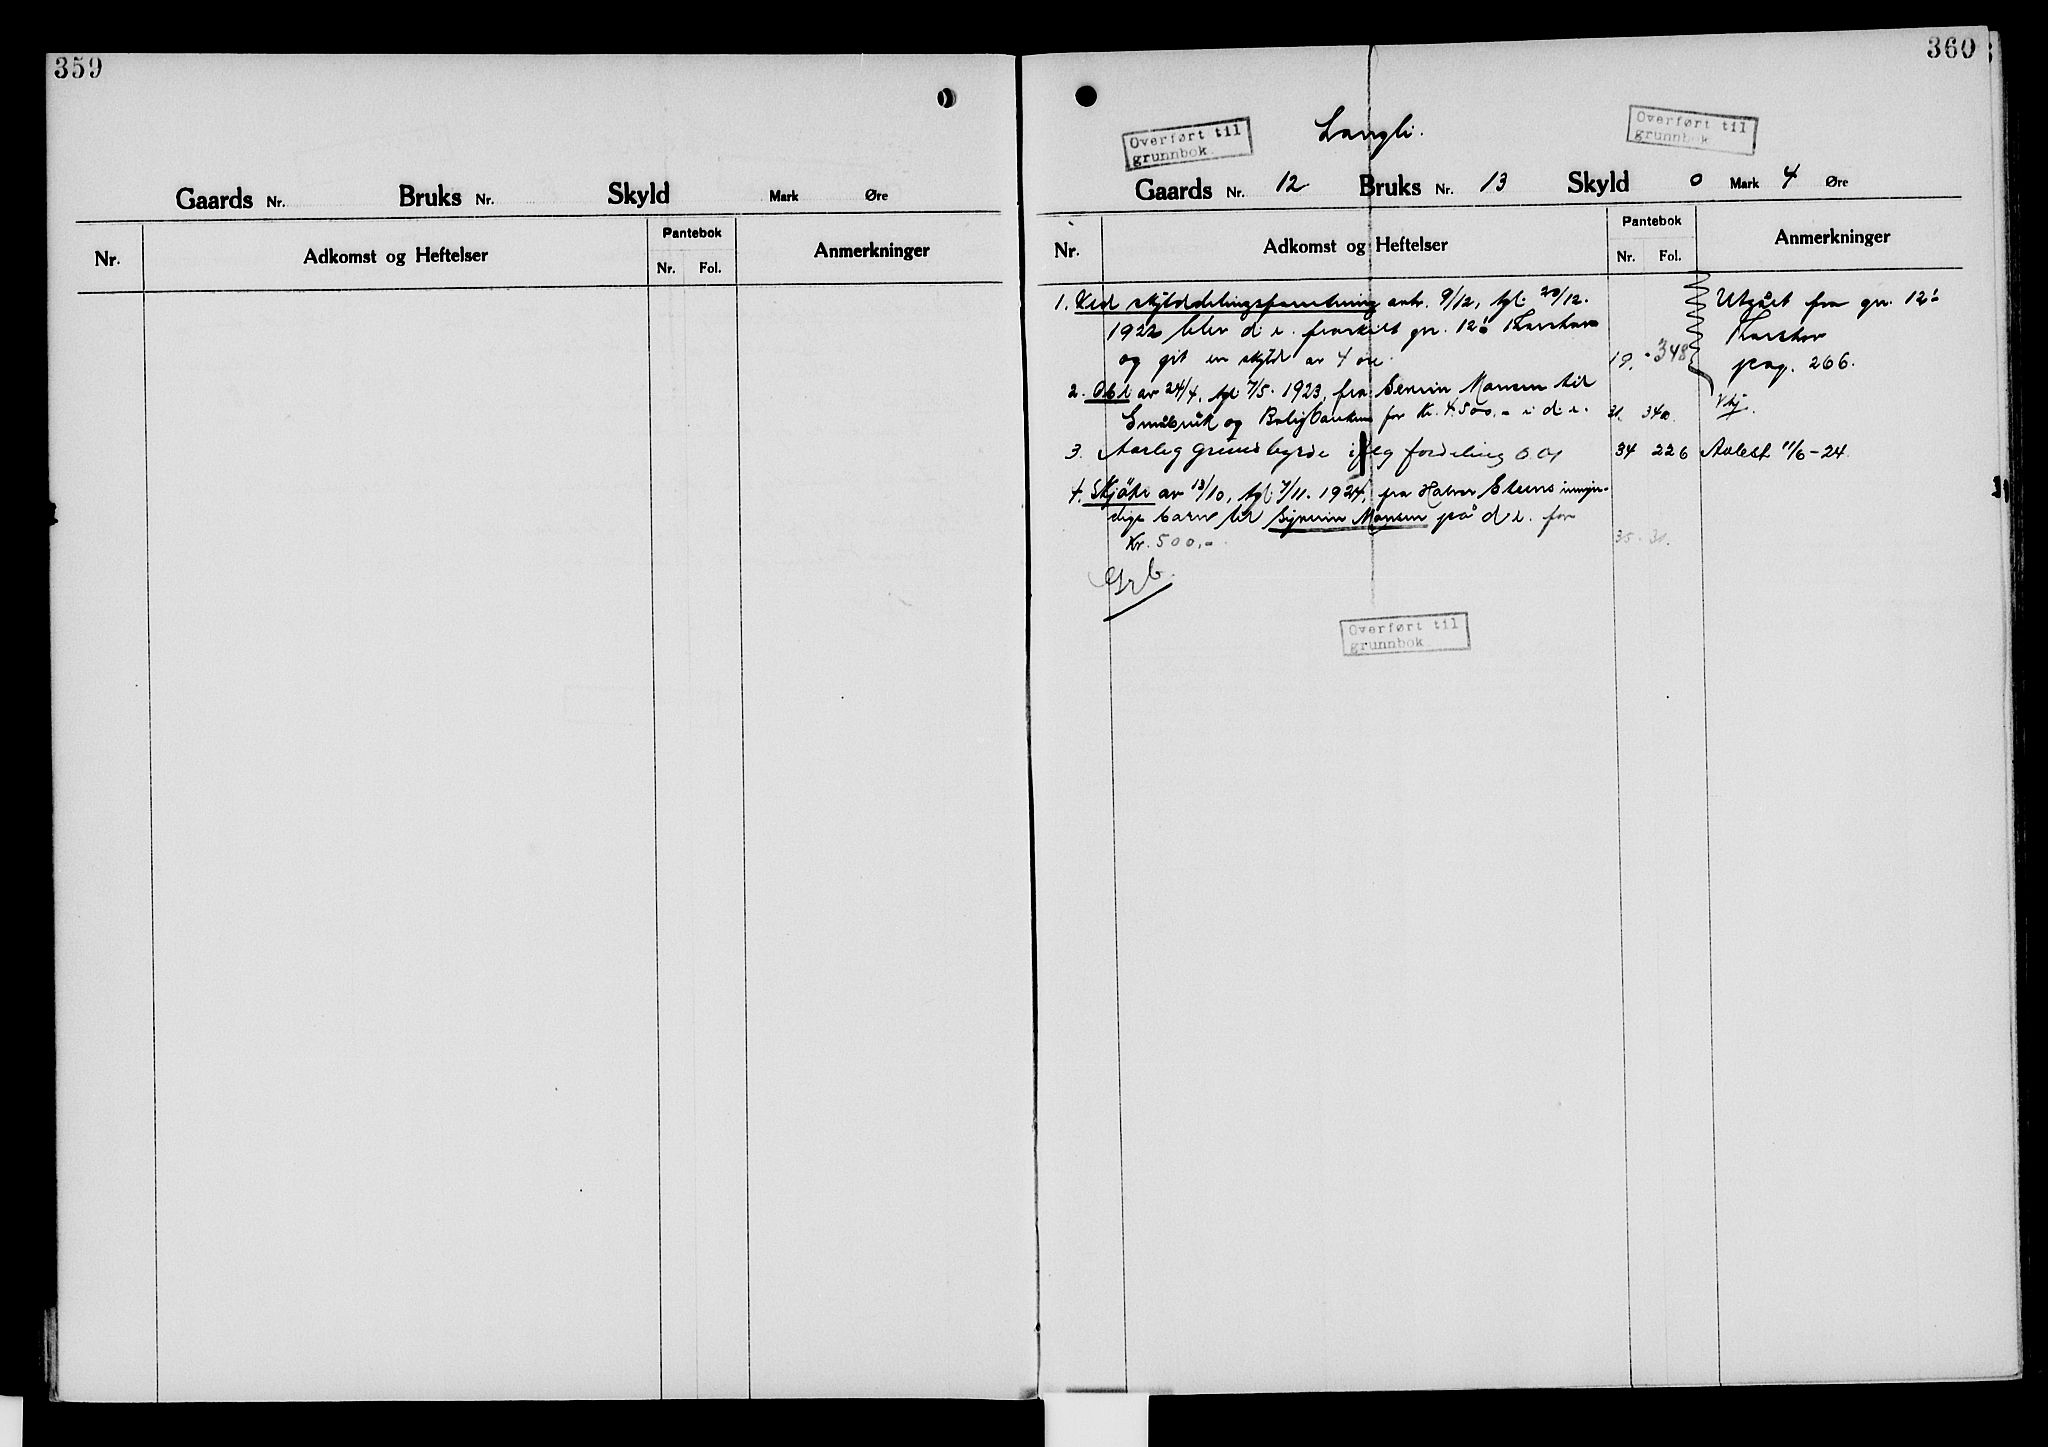 359
Gaards Nr. Bruks Nr. Skyld Mark Øre
Nr. Adkomst og Heftelser Pantebok Nr. Fol. Anmerkninger
360
Overført til
grunnbok
Langli.
Overført til
grunnbok
Gaards Nr. 12 Bruks Nr. 13 Skyld 0 Mark 4 Øre
Nr. Adkomst og Heftelser Pantebok Nr. Fol. Anmerkninger
1. Ved skylddelingsforretning avh. 9/12, tgl. 20/12. Utgået fra gn. 12
1922 blev d. e. fraskilt gn. 12
og git en skyld av 4 øre. 19. 348 pag. 266.
2. Obl av 24/4, tgl 7/5. 1923, fra Hansen til
Småbruk og Boligbanken for Kr. 4500,- i d. e. 31. 340.
3. Aarlig grundbyrde iflg fordeling 0.04 34 226 Avlest 11/6-24
4. Skjöte av 13/10, tgl. 7/11. 1924, fra Halvor umyn-
dige barn til Hansen på d. e. for
Kr. 500,- 35. 31.
Grb.
Overført til
grunnbok